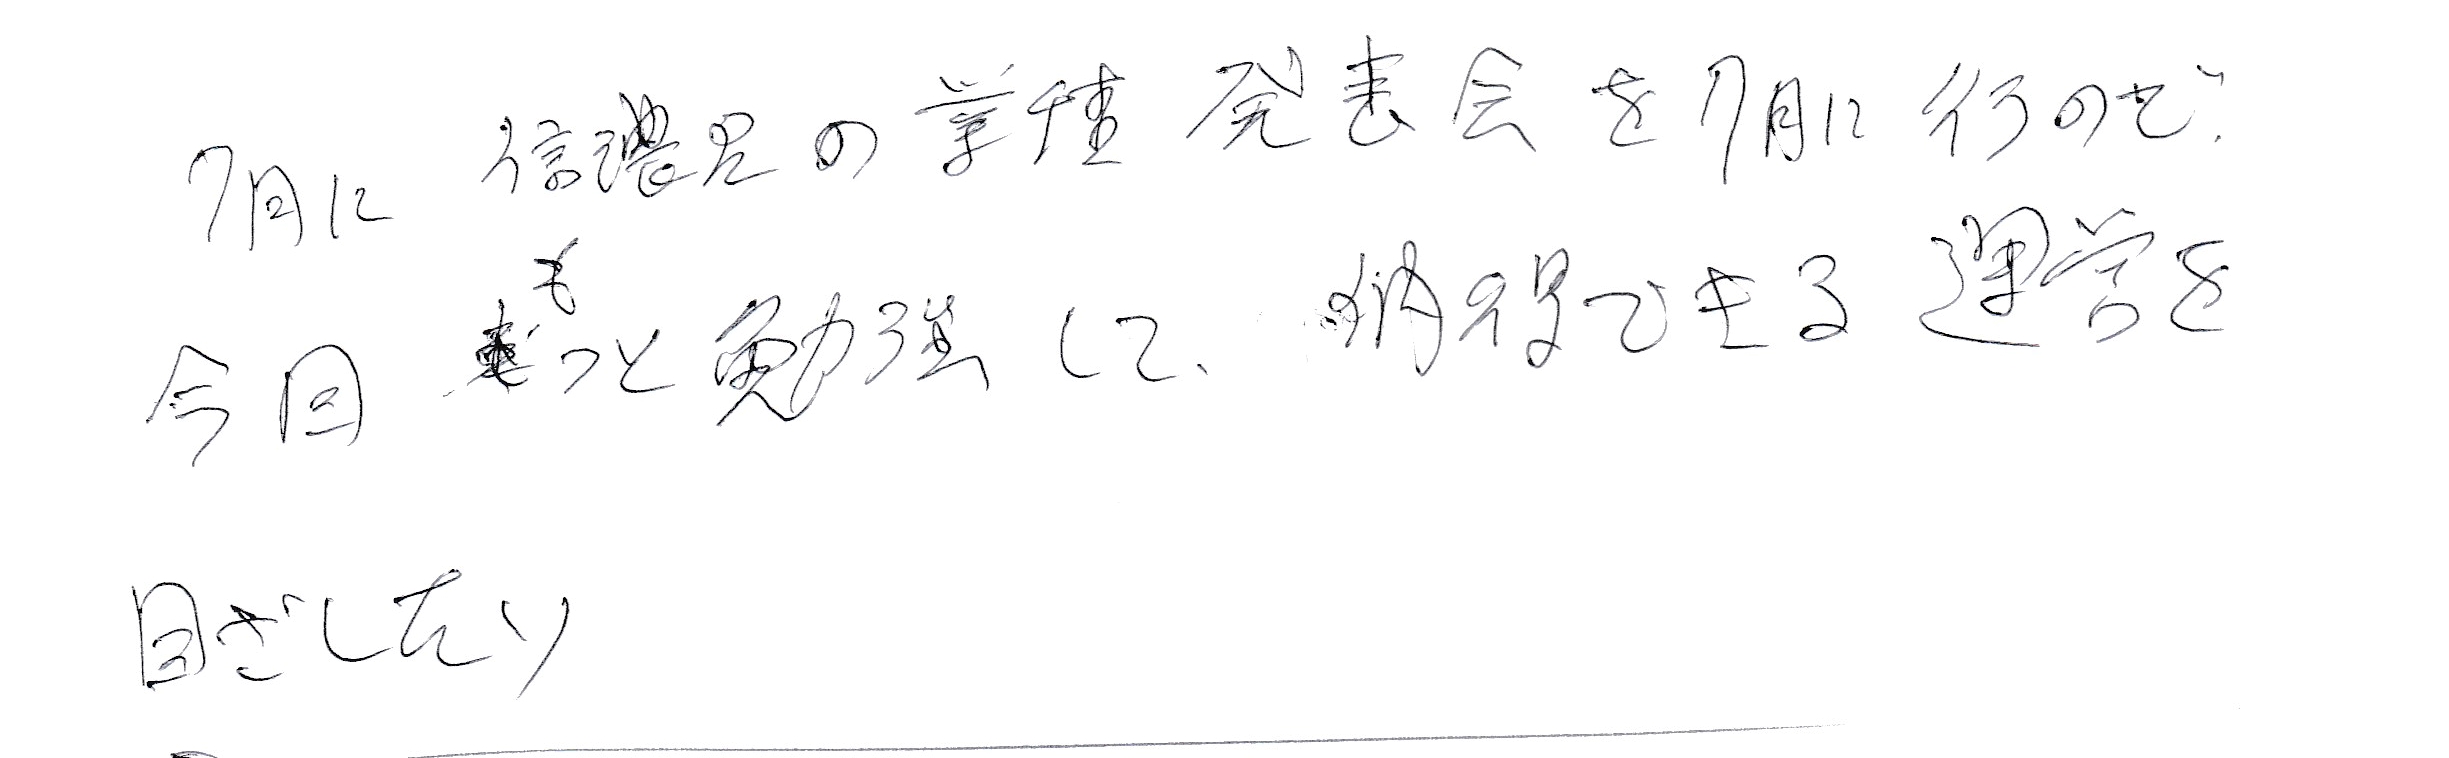 7月に 信濃児の学種発表会を7月に行ので、
今回もっと勉強して、納得できる運営を
目ざしたい